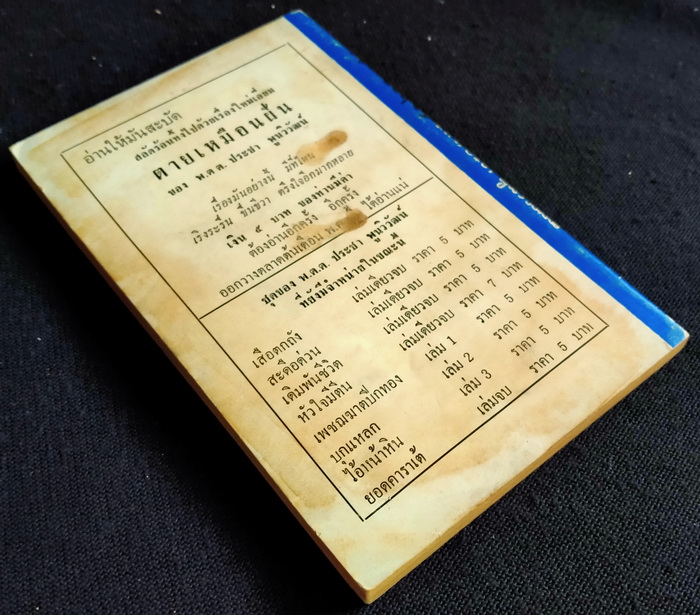 อ่านให้มันสะบัด
ถลัดร้อนทั้งไปด้วยเรื่องใหม่เอี่ยม
ตายเหมือนยิ้ม
ของ พ.ต.ต. ประชา พูนวิวัฒน์
เรื่องมันอย่างนี้ มีที่ไหน
เริงระรื่น ชื่นชีวา ตรึงใจอีกมากหลาย
เงิน ๕ บาท ของท่านมีค่า
ต้องอ่านอีกครั้ง อีกครั้ง
ออกวางตลาดต้นเดือน ได้อ่านแน่
ชุดของ พ.ต.ต. ประชา พูนวิวัฒน์
ที่ยังมีจำหน่ายในขณะนี้
เสือตกถัง เล่มเดียวจบ ราคา 5 บาท
สะดือด่วน เล่มเดียวจบ ราคา 5 บาท
เดิมพันชีวิต เล่มเดียวจบ ราคา 5 บาท
หัวใจมีตีน เล่มเดียวจบ ราคา 7 บาท
เพชฌฆาตปีกทอง เล่ม 1 ราคา 5 บาท
บุกแหลก เล่ม 2 ราคา 5 บาท
ไอ้หน้าหิน เล่ม 3 ราคา 5 บาท
ยอดคาราเต้ เล่มจบ ราคา 5 บาท